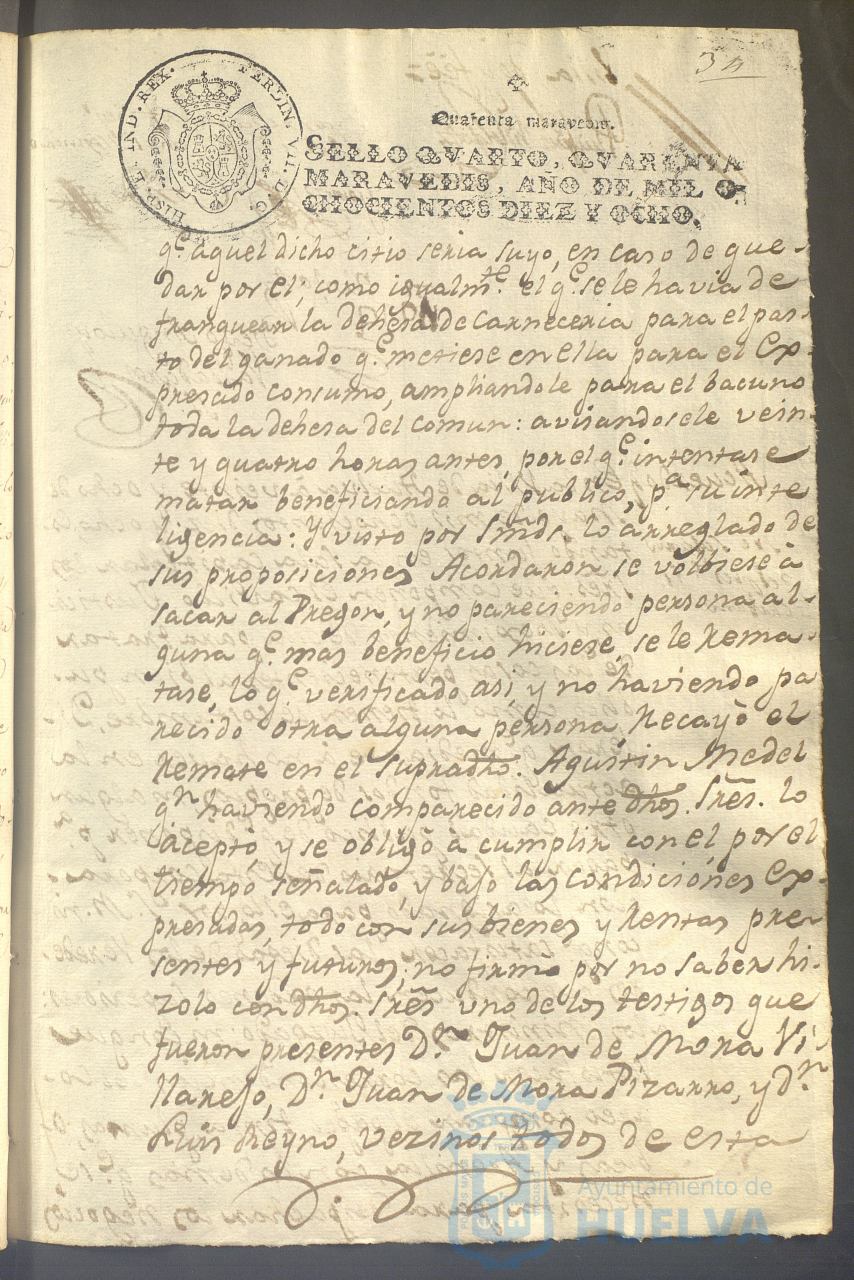 HISP. E. IND. REX. FERDIN. VII. D. G.
Quarenta maravedis.
SELLO QVARTO, QVARENTA
MARAVEDIS, AÑO DE MIL O-
CHOCIENTOS DIEZ Y OCHO.
q.e aquel dicho citio seria suyo, en caso de que-
dar por el; como igualm.te el q.e se le havia de
franquear la dehesa de Carneceria para el pas-
to del ganado q.e metiese en ella para el Ex-
presado consumo, ampliandole para el bacuno
toda la dehesa del comun: avisandosele vein-
te y quatro horas antes, por el q.e intentase
matar beneficiando al publico, p.a su inte
ligencia: Y visto por Smds. lo arreglado de
sus proposiciones Acordaron se volbiese à
sacar al Pregon, y no pareciendo persona al-
guna q.e mas beneficio hiciese, se le Rema-
tase, lo q.e verificado asi, y no haviendo pa
recido otra alguna persona, Recayò el
Remate en el Supradho. Agustin Medel
q.n haviendo comparecido ante dhos. Srẽs. lo
aceptò, y se obligò à cumplir con el por el
tiempo señalado, y bajo las condiciones Ex-
presadas, todo con sus bienes y Rentas pre-
sentes y futuros; no firmò por no saber hi-
zolo con dhos. Srẽs uno de los testigos que
fueron presentes D.n Juan de Mora Vi-
llarejo, D.n Juan de Mora Pizarro, y d.n
Luis Reyno, vezinos todos de esta
Ayuntamiento de
HUELVA